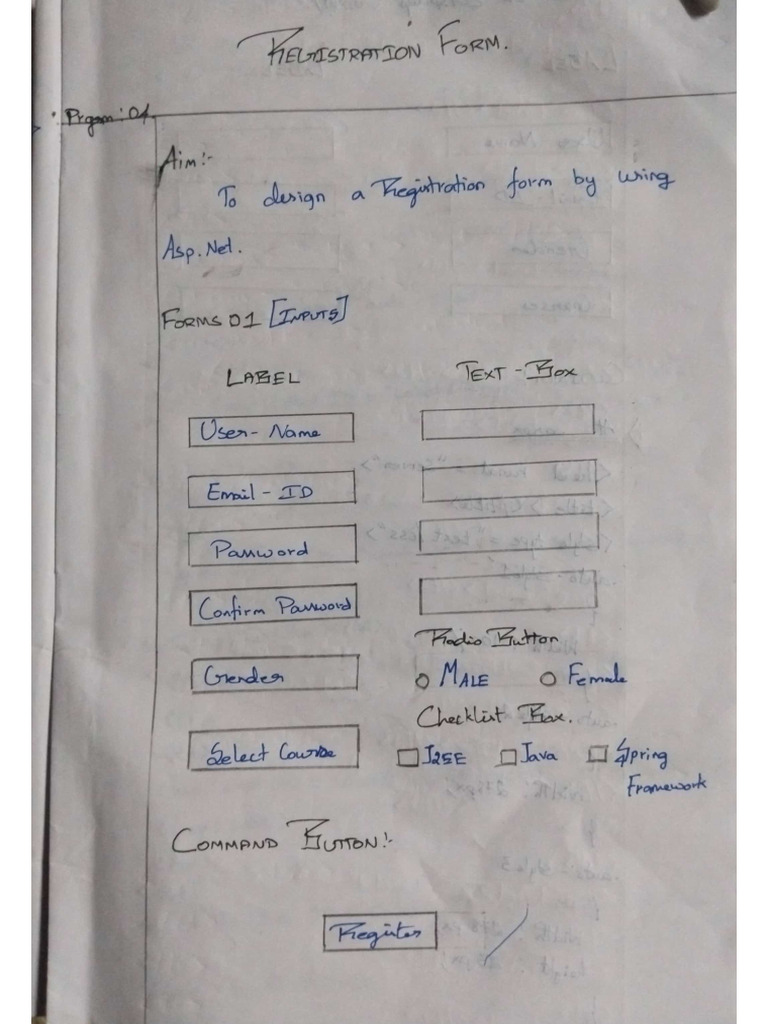 REGISTRATION FORM.
Prgm: 01
Aim:-
To design a Registration form by using
Asp.Net.
FORMS 01 [INPUTS]
LABEL TEXT-BOX
User-Name
Email-ID
Password
Confirm Password
Radio Button
Gender MALE Female
Checklist Box.
Select Course J2SE Java Spring
Framework
COMMAND BUTTON:-
Register